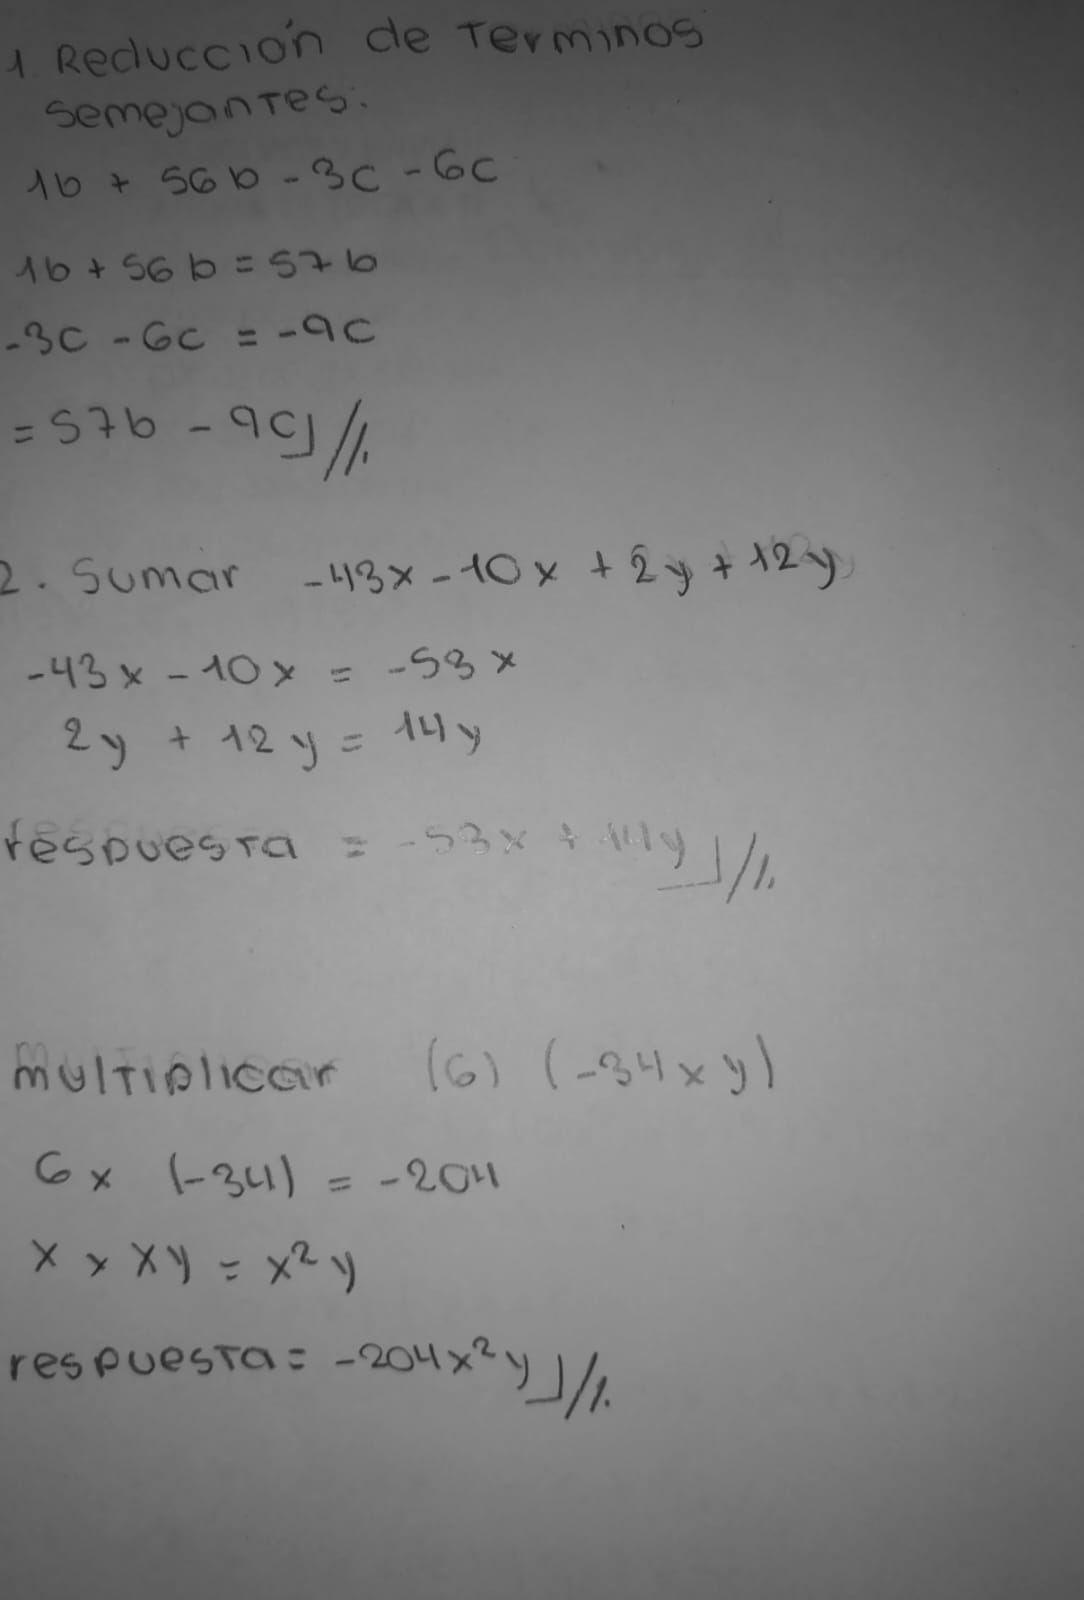 1. Reducción de Terminos
semejantes:
1b + 56b - 3c - 6c
1b + 56b = 57b
-3c - 6c = -9c
= 57b - 9c//.
2. Sumar -43x - 10x + 2y + 12y
-43x - 10x = -53x
2y + 12y = 14y
respuesta = -53x + 14y//.
Multiplicar (6) (-34xy)
6 x (-34) = -204
x x xy = x²y
respuesta = -204x²y//.